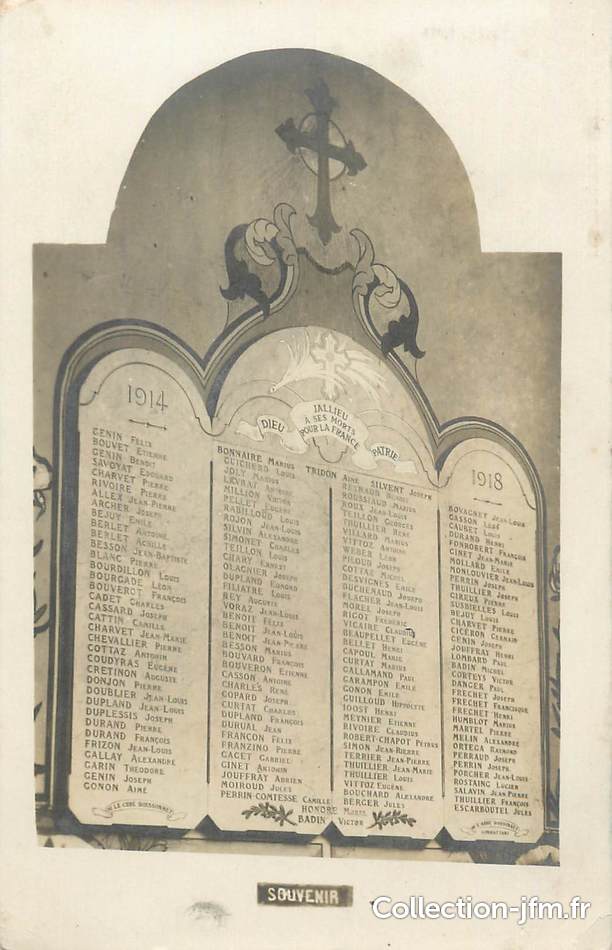 1914
GENIN FÉLIX
BOUVET ETIENNE
GENIN BENOIT
SAVOYAT EDOUARD
CHARVET PIERRE
RIVOIRE PIERRE
ALLEX JEAN-PIERRE
ARCHER JOSEPH
BEJUY EMILE
BERLET ANTOINE
BERLET ACHILLE
BESSON JEAN-BAPTISTE
BLANC PIERRE
BOURDILLON LOUIS
BOURGADE LÉON
BOUVEROT FRANÇOIS
CADET CHARLES
CASSARD JOSEPH
CATTIN CAMILLE
CHARVET JEAN-MARIE
CHEVALLIER PIERRE
COTTAZ ANTONIN
COUDYRAS EUGÈNE
CRETINON AUGUSTE
DONJON PIERRE
DOUBLIER JEAN-LOUIS
DUPLAND JEAN-LOUIS
DUPLESSIS JOSEPH
DURAND PIERRE
DURAND FRANÇOIS
FRIZON JEAN-LOUIS
GALLAY ALEXANDRE
GARIN THEODORE
GENIN JOSEPH
GONON AIMÉ
DIEU
JALLIEU
À SES MORTS
POUR LA FRANCE
PATRIE
BONNAIRE MARIUS TRIDON AIMÉ SILVENT JOSEPH
GUICHERD LOUIS
JOLY MARIUS
LEVRAT ANTOINE
MILLION VICTOR
PELLET EUGÈNE
RABILLOUD LOUIS
ROJON JEAN-LOUIS
SILVIN ALEXANDRE
SIMONET CHARLES
TEILLON LOUIS
CHARY ERNEST
OLAGNIER JOSEPH
DUPLAND EDMOND
FILIATRE LOUIS
REY AUGUSTE
VORAZ JEAN-LOUIS
BENOIT FÉLIX
BENOIT JEAN-LOUIS
BENOIT JEAN-PIERRE
BESSON MARIUS
BOUVARD FRANÇOIS
BOUVERON ETIENNE
CASSON ANTOINE
CHARLES RENÉ
COPARD JOSEPH
CURTAT CHARLES
DUPLAND FRANÇOIS
DURUAL JEAN
FRANÇON FÉLIX
FRANZINO PIERRE
GACET GABRIEL
GINET ANTONIN
JOUFFRAY ADRIEN
MOIROUD JULES
PERRIN-COMTESSE CAMILLE
REYNAUD BENOIT
ROUSSIAUD MARIUS
ROUX JEAN-LOUIS
TEILLON GEORGES
THUILLIER RENÉ
VILLARD MARIUS
VITTOZ ANTOINE
WEBER LÉON
PILOUD JOSEPH
COTTAZ MICHEL
DESVIGNES EMILE
DUCHENAUD JOSEPH
FLACHER JEAN-LOUIS
MOREL JOSEPH
RIGOT FRÉDÉRIC
VICAIRE CLAUDIUS
BEAUPELLET EUGÈNE
BELLET HENRI
CAPOUL MARIE
CURTAT MARIUS
GALLAMAND PAUL
GARAMPON EMILE
GONON EMILE
GUILLOUD HIPPOLYTE
JOOST HENRI
MEYNIER ETIENNE
RIVOIRE CLAUDIUS
ROBERT-CHAPOT PETRUS
SIMON JEAN-PIERRE
TERRIER JEAN-PIERRE
THUILLIER JEAN-MARIE
THUILLIER LOUIS
VITTOZ EUGÈNE
BOUCHARD ALEXANDRE
BERGER JULES
HONORÉ
BADIN VICTOR
1918
BOVAGNET JEAN-LOUIS
GASSON
CAUSET LOUIS
DURAND HENRI
FONROBERT FRANÇOIS
GINET JEAN-MARIE
MOLLARD EMILE
MONLOUVIER JEAN-LOUIS
PERRIN JOSEPH
THUILLIER JOSEPH
GIREUX PIERRE
SUSBIELLES LOUIS
BEJUY LOUIS
CHARVET PIERRE
CICÉRON GERMAIN
GENIN JOSEPH
JOUFFRAY HENRI
LOMBARD PAUL
BADIN MICHEL
CORTEYS VICTOR
DANGER PAUL
FRECHET JOSEPH
FRECHET FRANCISQUE
FRECHET HENRI
HUMBLOT MARIUS
MARTEL PIERRE
MELIN ALEXANDRE
ORTEGA RAYMOND
PERRAUD JOSEPH
PERRIN JOSEPH
PORCHER JEAN-LOUIS
ROSTAING LUCIEN
SALAVIN JEAN-PIERRE
THUILLIER FRANÇOIS
ESCARBOUTEL JULES
SOUVENIR
Collection-jfm.fr